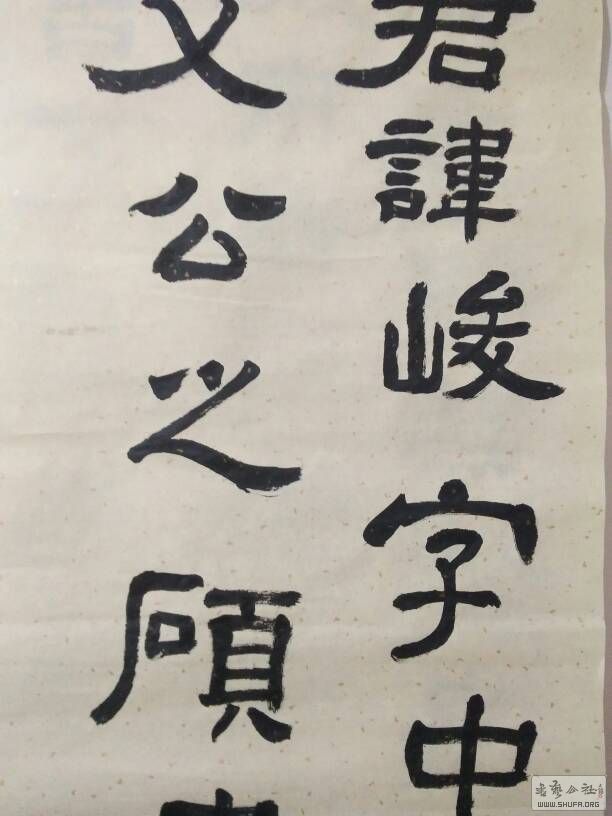 君諱峻字中
文公之碩
书艺公社
WWW.SHUFA.ORG